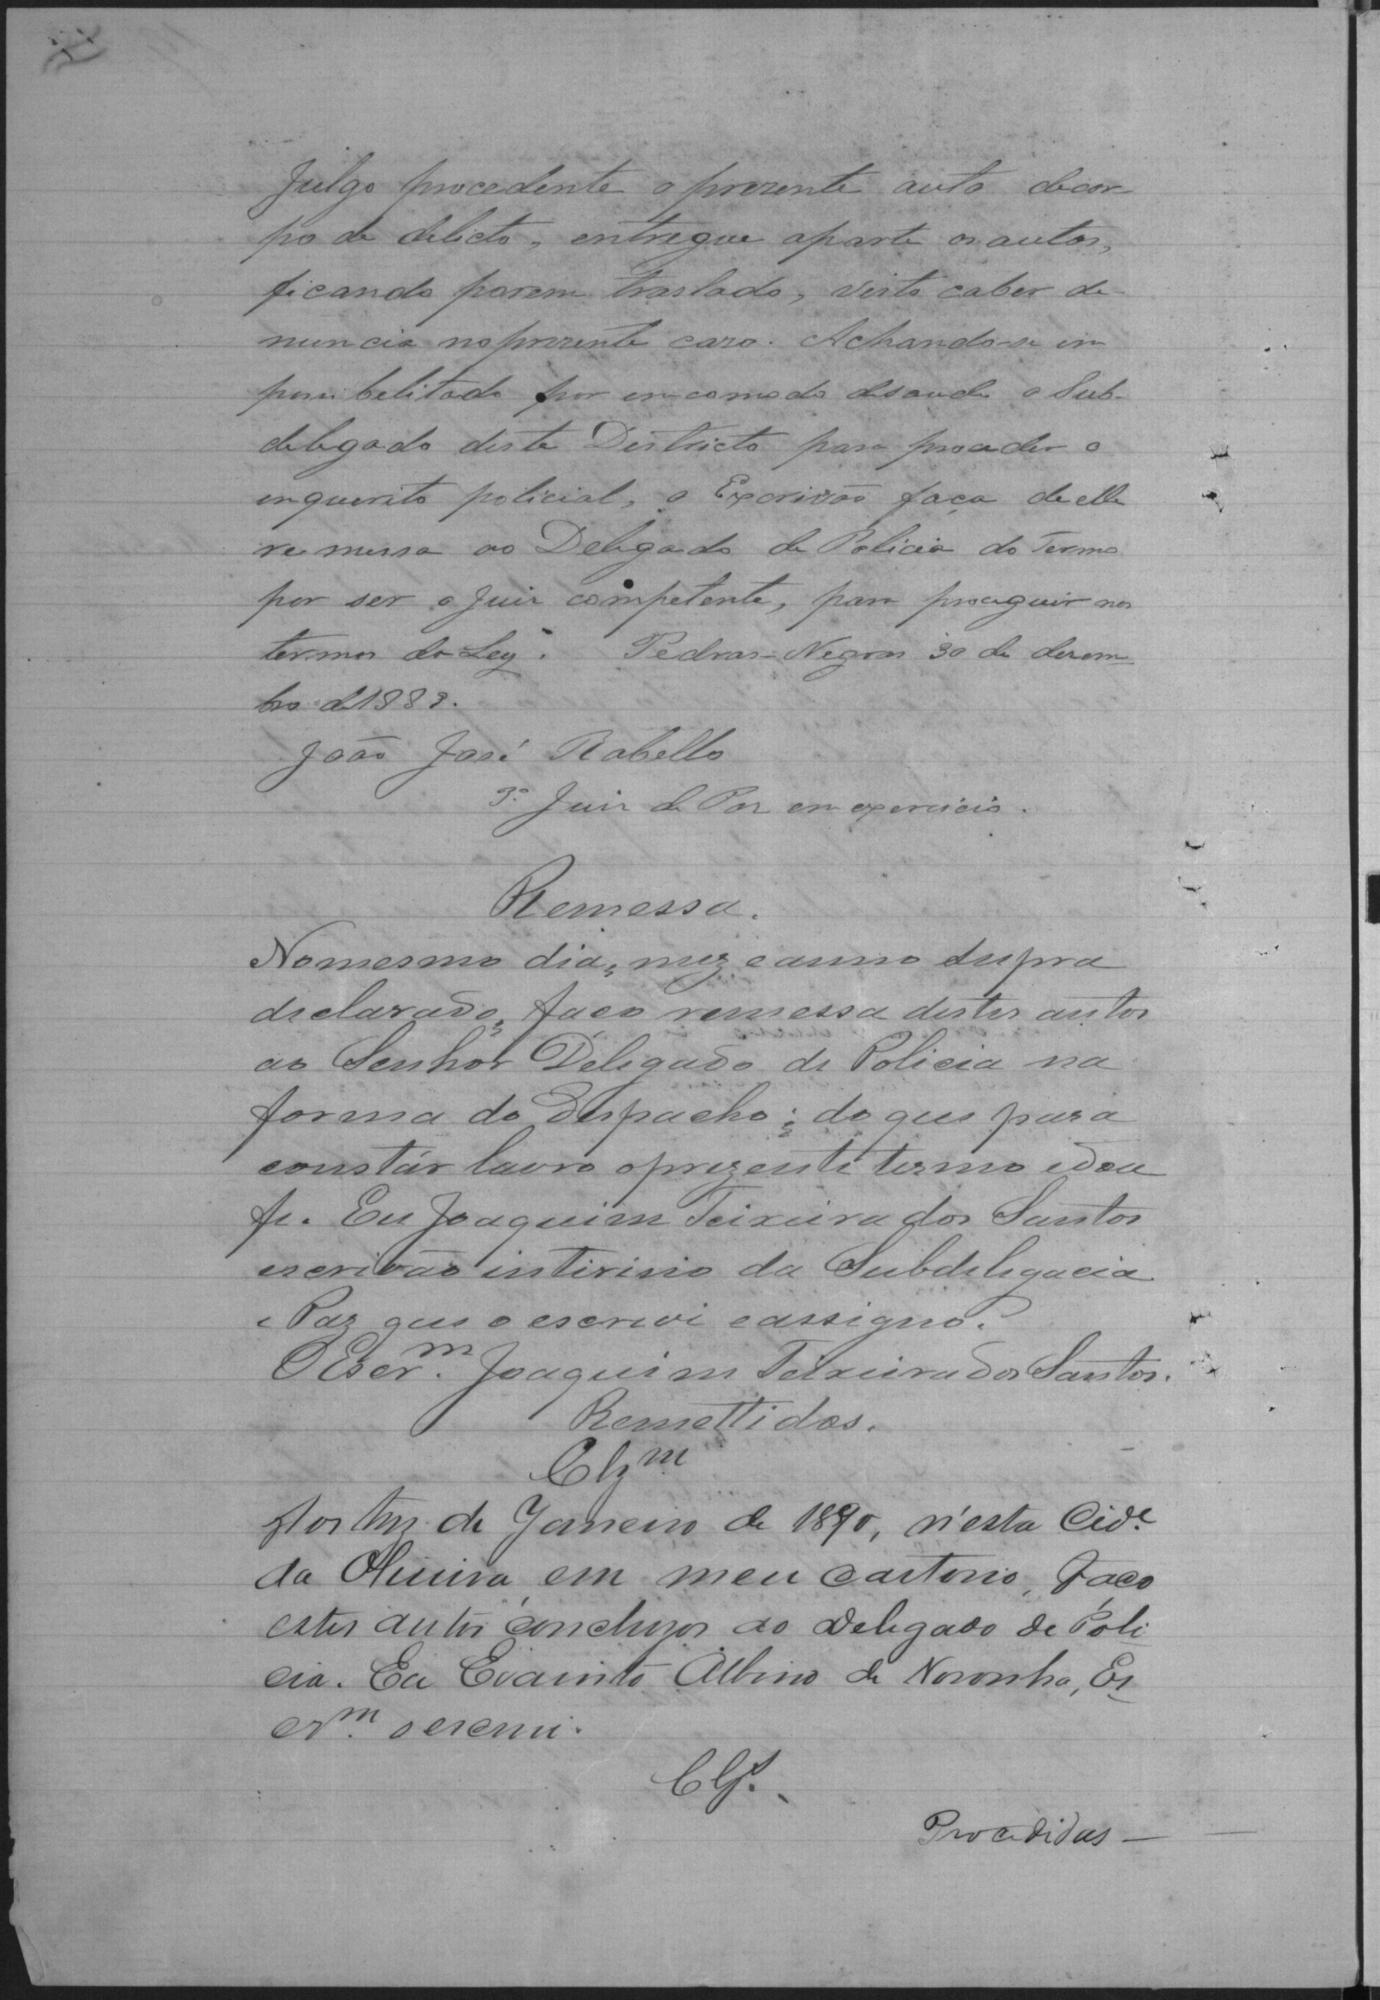 Julgo procedente o prezente auto de cor-
po de delicto, entregue a parte os autos,
ficando porem traslado, visto caber de-
nuncia no prezente cazo. Achando-se im
possibelitado por encomodo de saude o Sub-
delegado deste Districto para proceder o
enquerito policial, o Escrivão faça de elle
remessa ao Delegado de Policia do Termo
por ser o Juiz competente, para proseguir nos
termos da Ley. Pedras-Negras 30 de dezem-
bro de 1889.
João José Rabello
3º Juiz de Paz em exercicio.
Remessa.
No mesmo dia, mez e anno supra
declarado, faço remessa destes autos
ao Senhor Delegado de Policia na
forma do Despacho; do que para
constár lavro o prezente termo e dou
fe. Eu Joaquim Teixeira dos Santos
escrivão interino da Subdelegacia
e Paz que o escrevi e assigno.
O Escr.m Joaquim Teixeira dos Santos.
Remettidos.
Clz.m
Aos trez de Janeiro de 1890, n'esta Cid.e
da Oliveira, em meu cartorio, faço
estes autos concluzos ao Delegado de Poli
cia. Eu Albino de Noronha, Es
cr.m o escrevi.
Clz.s
Procedidas —